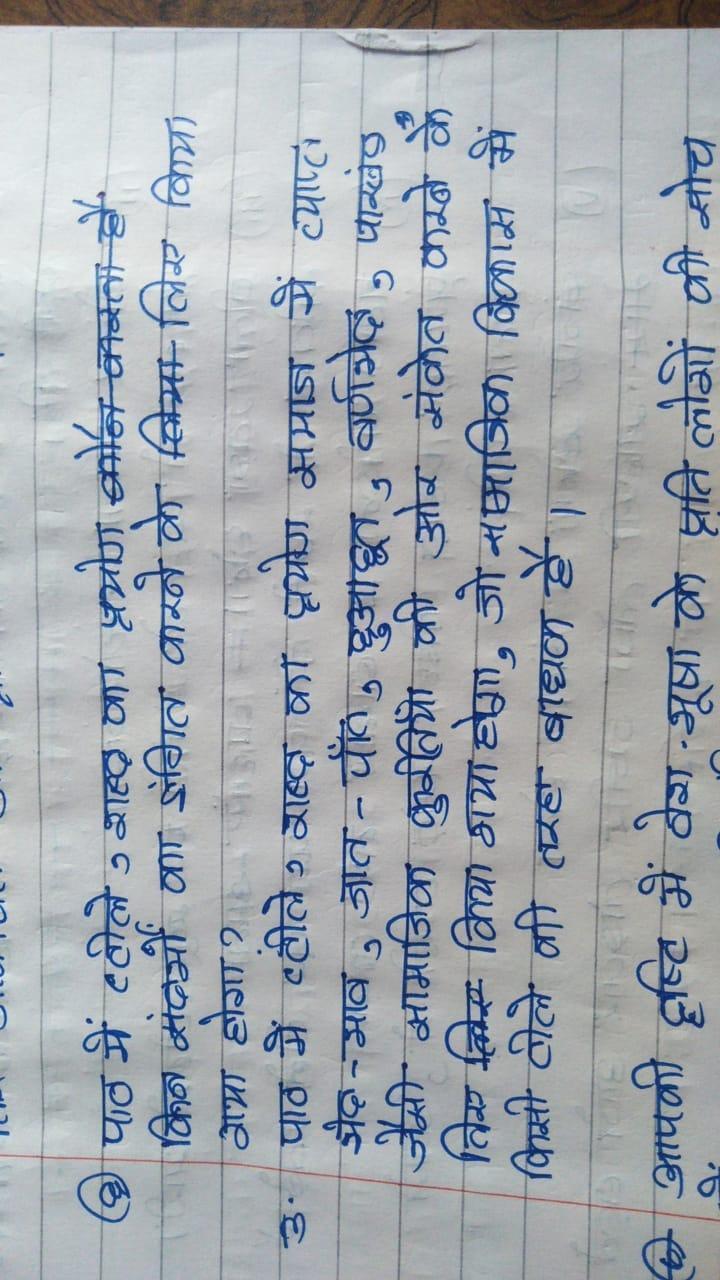 पाठ में 'टीले' शब्द का प्रयोग कौन करता है
किन संदर्भों का इंगित करने के लिया लिए किया
गया होगा?
उ. पाठ में 'टीले' शब्द का प्रयोग समाज में व्याप्त
भेद-भाव, जात-पाँत, छुआछूत, वर्णभेद, पाखंड
जैसी सामाजिक कुरीतियों की ओर संकेत करने के
लिए किया गया होगा, जो सामाजिक विकास में
किसी टीले की तरह बाधक है।
आपकी दृष्टि में वेश-भूषा के प्रति लोगों की सोच
में